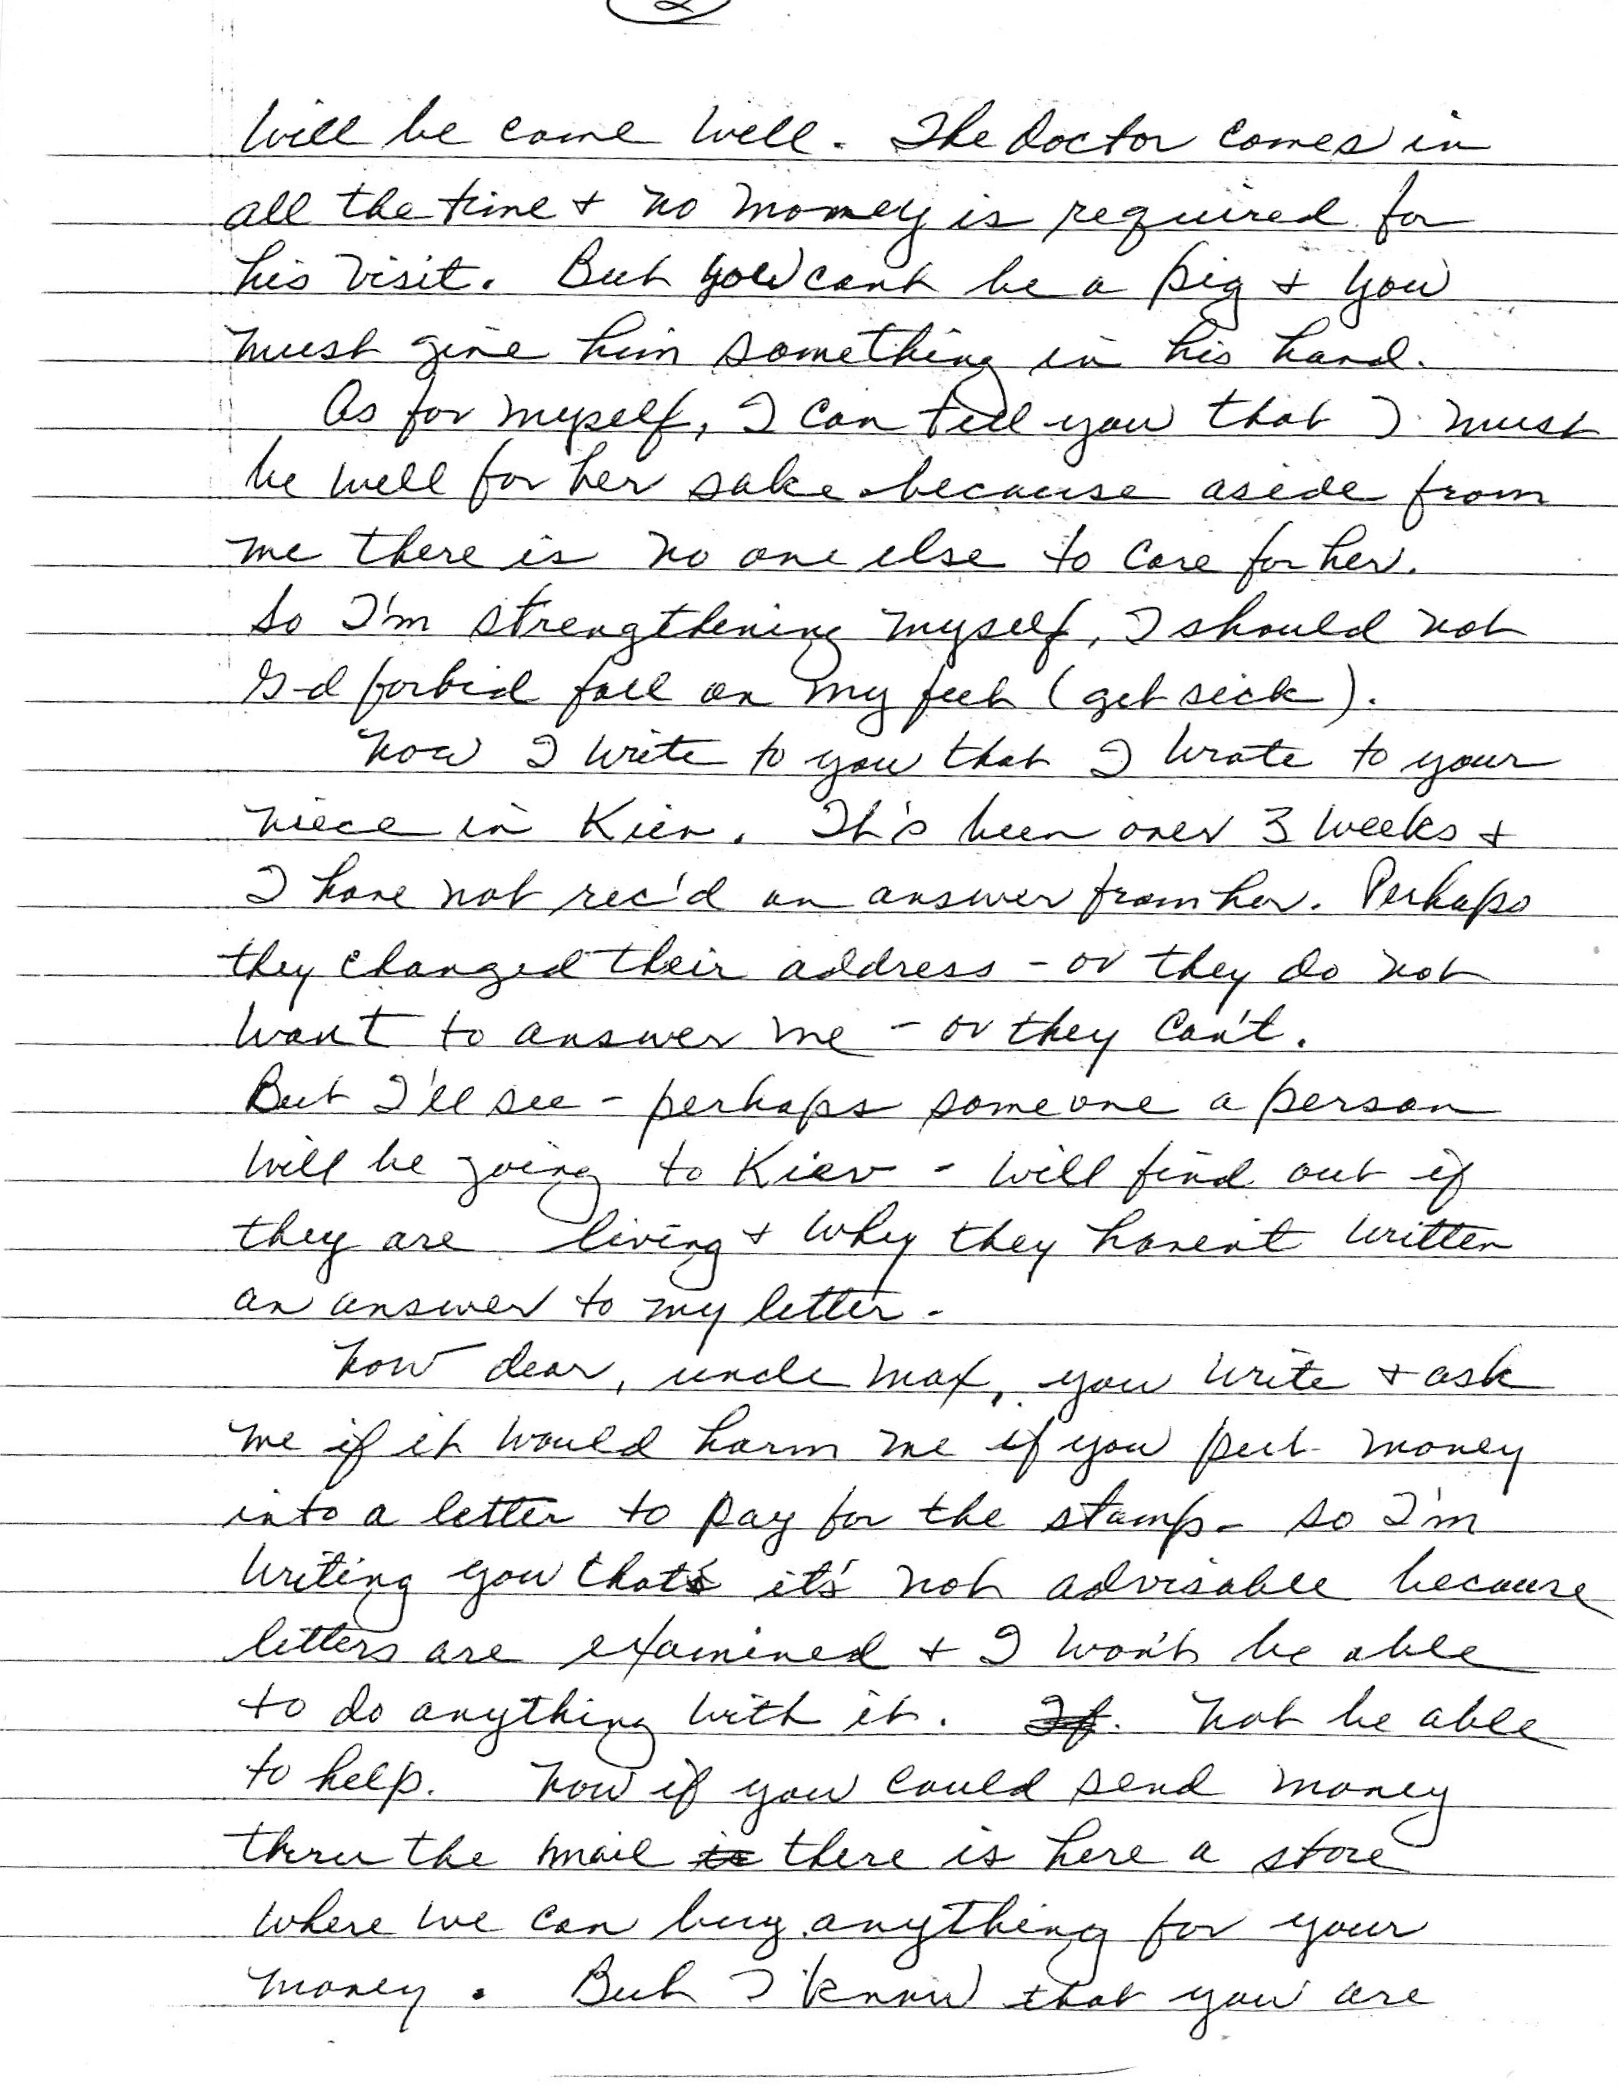 2
will be come well. The Doctor comes in
all the time + no momey is required for
his visit. But you cant be a pig + you
must give him something in his hand.
As for myself, I can tell you that I must
be well for her sake because aside from
me there is no one else to care for her.
So I'm strengthening myself, I should not
G-d forbid fall on my feet (get sick).
Now I write to you that I wrote to your
niece in Kiev. It's been over 3 weeks +
I have not rec'd an answer from her. Perhaps
they changed their address - or they do not
want to answer me - or they can't.
But I'll see - perhaps someone a person
will be going to Kiev - will find out if
they are living + why they haven't written
an answer to my letter -
Now dear, uncle Max, you write + ask
me if it would harm me if you put money
into a letter to pay for the stamp - so I'm
writing you that's it's not advisable because
letters are examined + I won't be able
to do anything with it. If. Not be able
to help. Now if you could send money
thru the mail is there is here a store
where we can buy anything for your
money. But I know that you are